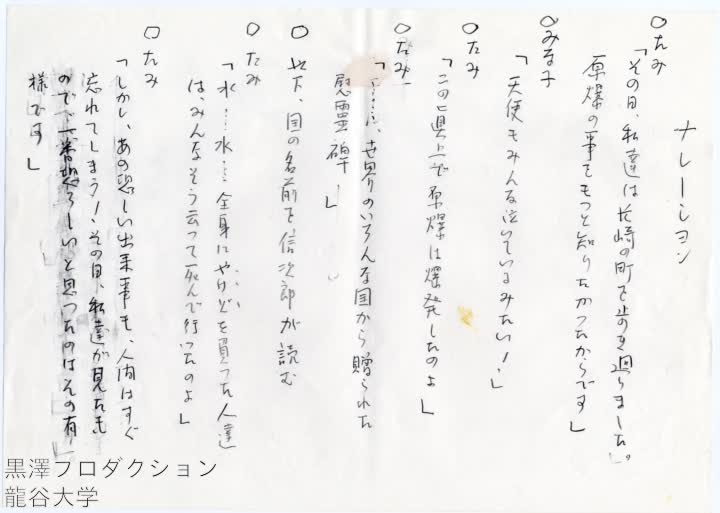 ナレーション
○たみ
「その日、私達は長崎の町を歩き廻りました。
原爆の事をもっと知りたかったからです」
○みな子
「天使もみんな泣いているみたい！」
○たみ
「この真上で原爆は爆発したのよ」
○たみ
「……、世界のいろんな国から贈られた
慰霊碑ー」
○以下、国の名前を信次郎が読む
○たみ
「水……水……全身にやけどを負った人達
は、みんなそう云って死んで行ったのよ」
○たみ
「しかし、あの恐しい出来事も、人間はすぐ
忘れてしまう！、その日、私達が見たも
ので一番恐ろしいと思ったのはその有
様です」
黒澤プロダクション
龍谷大学